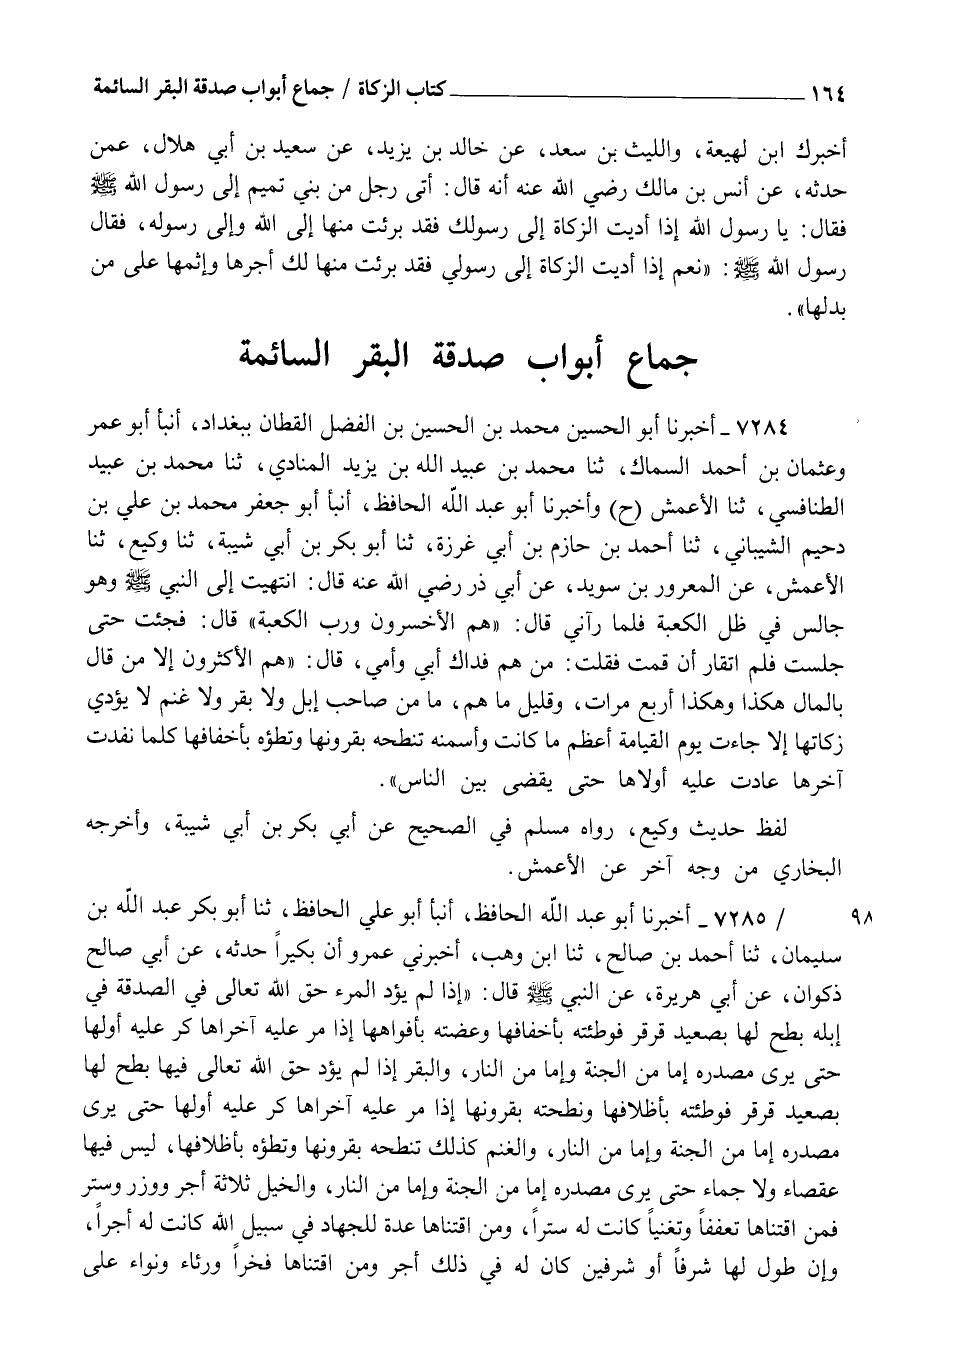 ١٦٤ ــــــــــــــــــــــــ كتاب الزكاة / جماع أبواب صدقة البقر السائمة
أخبرك ابن لهيعة، والليث بن سعد، عن خالد بن يزيد، عن سعيد بن أبي هلال، عمن
حدثه، عن أنس بن مالك رضي الله عنه أنه قال: أتى رجل من بني تميم إلى رسول الله ﷺ
فقال: يا رسول الله إذا أديت الزكاة إلى رسولك فقد برئت منها إلى الله وإلى رسوله، فقال
رسول الله ﷺ: «نعم إذا أديت الزكاة إلى رسولي فقد برئت منها لك أجرها وإثمها على من
بدلها».
جماع أبواب صدقة البقر السائمة
٧٢٨٤ ـ أخبرنا أبو الحسين محمد بن الحسين بن الفضل القطان ببغداد، أنبأ أبو عمر
وعثمان بن أحمد السماك، ثنا محمد بن عبيد الله بن يزيد المنادي، ثنا محمد بن عبيد
الطنافسي، ثنا الأعمش (ح) وأخبرنا أبو عبد اللّه الحافظ، أنبأ أبو جعفر محمد بن علي بن
دحيم الشيباني، ثنا أحمد بن حازم بن أبي غرزة، ثنا أبو بكر بن أبي شيبة، ثنا وكيع، ثنا
الأعمش، عن المعرور بن سويد، عن أبي ذر رضي الله عنه قال: انتهيت إلى النبي ﷺ وهو
جالس في ظل الكعبة فلما رآني قال: «هم الأخسرون ورب الكعبة» قال: فجئت حتى
جلست فلم اتقار أن قمت فقلت: من هم فداك أبي وأمي، قال: «هم الأكثرون إلا من قال
بالمال هكذا وهكذا أربع مرات، وقليل ما هم، ما من صاحب إبل ولا بقر ولا غنم لا يؤدي
زكاتها إلا جاءت يوم القيامة أعظم ما كانت وأسمنه تنطحه بقرونها وتطؤه بأخفافها كلما نفدت
آخرها عادت عليه أولاها حتى يقضى بين الناس».
لفظ حديث وكيع، رواه مسلم في الصحيح عن أبي بكر بن أبي شيبة، وأخرجه
البخاري من وجه آخر عن الأعمش.
٩٨ / ٧٢٨٥ ـ أخبرنا أبو عبد اللّه الحافظ، أنبأ أبو علي الحافظ، ثنا أبو بكر عبد اللّه بن
سليمان، ثنا أحمد بن صالح، ثنا ابن وهب، أخبرني عمرو أن بكيراً حدثه، عن أبي صالح
ذكوان، عن أبي هريرة، عن النبي ﷺ قال: «إذا لم يؤد المرء حق الله تعالى في الصدقة في
إبله بطح لها بصعيد قرقر فوطئته بأخفافها وعضته بأفواهها إذا مر عليه آخراها كر عليه أولها
حتى يرى مصدره إما من الجنة وإما من النار، والبقر إذا لم يؤد حق الله تعالى فيها بطح لها
بصعيد قرقر فوطئته بأظلافها ونطحته بقرونها إذا مر عليه آخراها كر عليه أولها حتى يرى
مصدره إما من الجنة وإما من النار، والغنم كذلك تنطحه بقرونها وتطؤه بأظلافها، ليس فيها
عقصاء ولا جماء حتى يرى مصدره إما من الجنة وإما من النار، والخيل ثلاثة أجر ووزر وستر
فمن اقتناها تعففاً وتغنياً كانت له ستراً، ومن اقتناها عدة للجهاد في سبيل الله كانت له أجراً،
وإن طول لها شرفاً أو شرفين كان له في ذلك أجر ومن اقتناها فخراً ورئاء ونواء على